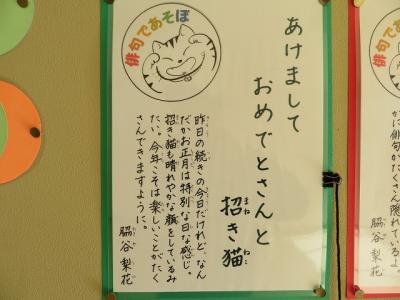 俳句であそぼ
あけまして
おめでとさんと
招き猫
まね
ねこ
昨日の続きの今日だけれど、なん
だかお正月は特別な日な感じ。
招き猫も晴れやかな顔をしているみ
たい。今年こそは楽しいことがたく
さんできますように。
脇谷梨花
かに俳句がたくさん隠れているよ
脇谷梨花